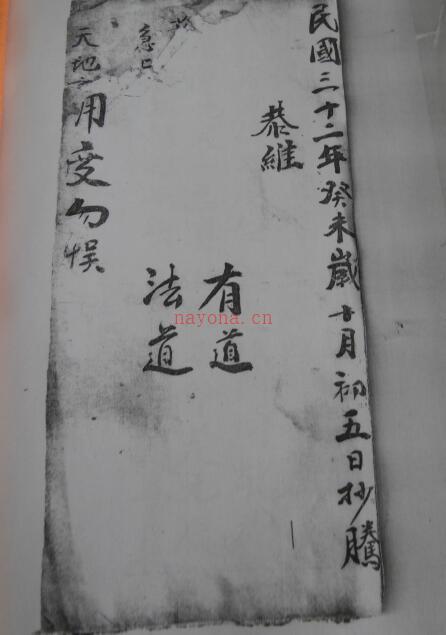 民國三十二年癸未歲十月初五日抄騰
恭維
有道
法道
急
天地之用度勿悮
nayona.cn